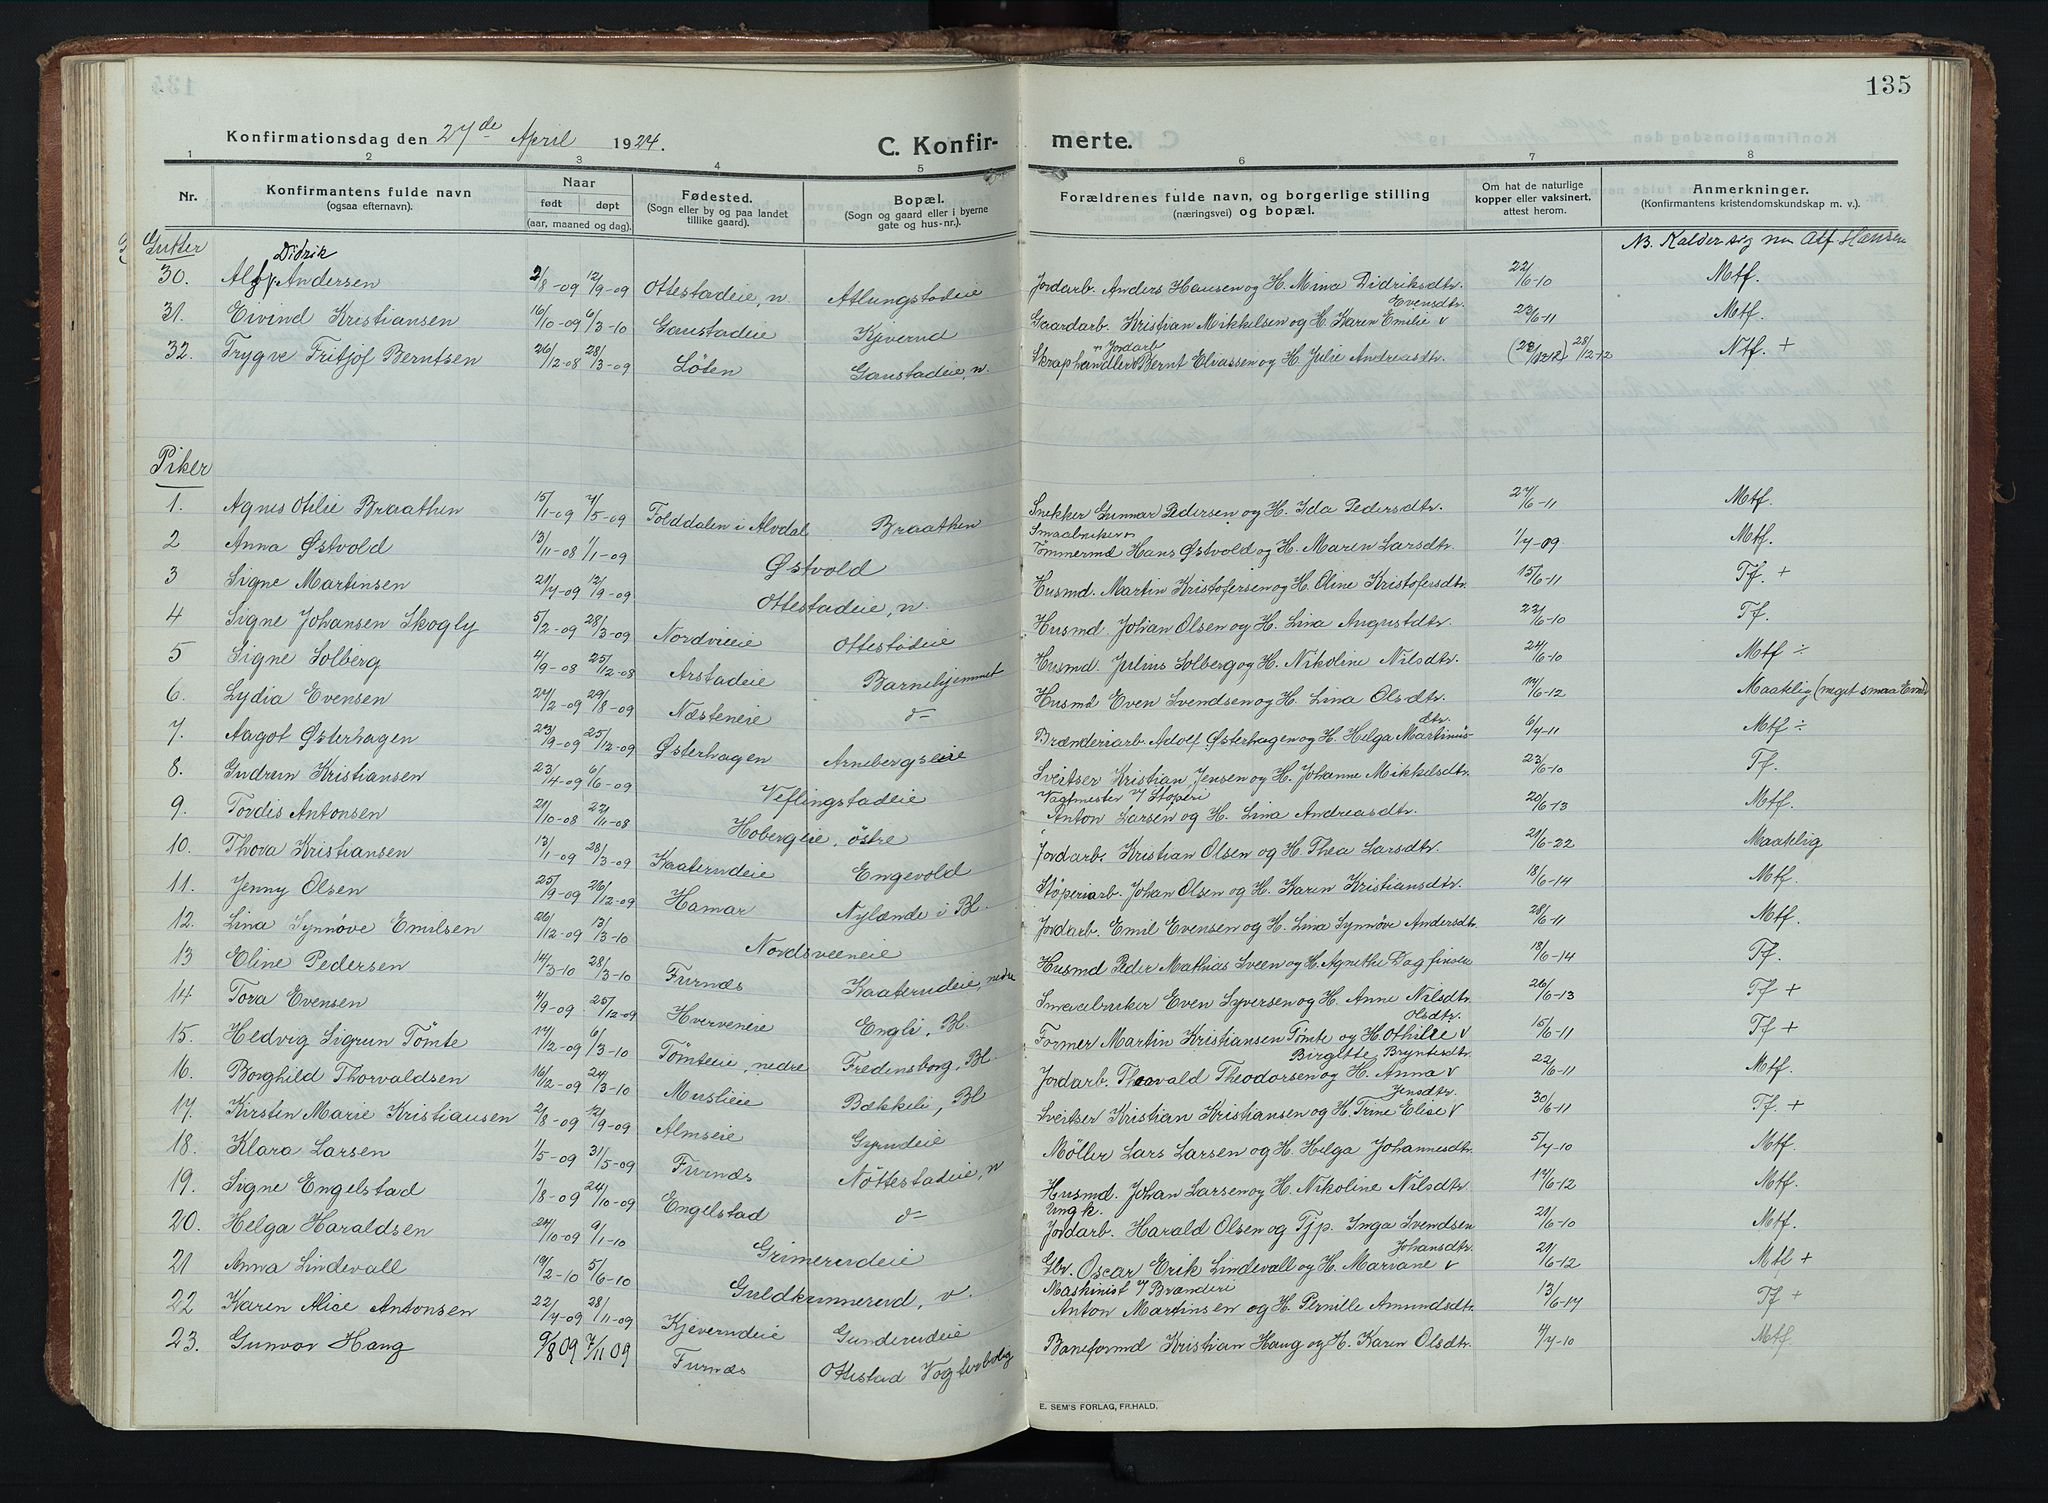 135
Konfirmationsdag den 27de April 1924.
C. Konfirmerte.
1 2 3 4 5 6 7 8
Nr. Konfirmantens fulde navn (ogsaa efternavn). Naar født døpt (aar, maaned og dag). Fødested. (Sogn eller by og paa landet tillike gaard). Bopæl. (Sogn og gaard eller i byerne gate og hus-nr.). Forældrenes fulde navn, og borgerlige stilling (næringsvei) og bopæl. Om hat de naturlige kopper eller vaksinert, attest herom. Anmerkninger. (Konfirmantens kristendomskundskap m. v.).
Gutter NB. Kalder sig nu Alf Hansen
30. Alf Didrik Andersen 2/8-09 12/9-09 Ottestadeie, n. Atlungstadeie Jordarb. Anders Hansen og H. Mina Didriksdtr. 22/6-10 Mtf.
31. Eivind Kristiansen 16/10-09 6/3-10 Gaustadeie Kjeverud Gaardarb. Kristian Mikkelsen og H. Karen Emilie Evensdtr. 23/6-11 Mtf.
32. Trygve Fritjof Berntsen 26/12-08 28/3-09 Løten Gaustadeie, n. Skraphandler n Jordarb Bernt Elvassen og H. Julie Andreasdtr. 28/12-12 Ntf. +
Piker
1. Agnes Otilie Braathen 15/1-09 7/5-09 Tolddalen i Alvdal Braathen Snekker Gunnar Pedersen og H. Ida Pedersdtr. 27/6-11 Mtf.
2 Anna Østvold 13/11-08 1/1-09 Østvold Smaabruker n Tømmermd Hans Østvold og H. Maren Larsdtr. 1/7-09 Mtf.
3 Signe Martinsen 21/7-09 12/9-09 Ottestadeie, n. Husmd. Martin Kristofersen og H. Oline Kristofersdtr. 15/6-11 Tf. +
4 Signe Johansen Skogly 5/2-09 28/3-09 Nordvieie Ottestadeie Husmd. Johan Olsen og H. Lina Augustdtr. 22/6-10 Tf.
5 Signe Solberg 4/9-08 25/12-08 Arstadeie Barnehjemmet Husmd. Julius Solberg og H. Nikoline Nilsdtr. 24/6-10 Mtf ÷
6. Lydia Evensen 27/2-09 29/8-09 Næsteneie d- Husmd Even Svendsen og H. Lina Olsdtr. 17/6-12 Maatelig (meget smaa Evner
7. Aagot Østerhagen 23/9-09 25/12-09 Østerhagen Arnebergseie Brænderiarb. Adolf Østerhagen og H. Helga Martinusdtr. 6/7-11 Mtf ÷
8. Gudrun Kristiansen 23/4-09 6/6-09 Veflingstadeie Sveitser Kristian Jensen og H. Johanne Mikkelsdtr. 23/6-10 Tf.
9. Tordis Antonsen 21/10-08 22/11-08 Hobergeie, østre Vagtmester v/ Støperi Anton Larsen og H. Lina Andreasdtr. 20/6-13 Mtf.
10. Thora Kristiansen 13/1-09 28/3-09 Kaaterudeie Engevold Jordarb. Kristian Olsen og H. Thea Larsdtr. 21/6-22 Maatelig
11. Jenny Olsen 25/9-09 26/12-09 Hamar Nylænde i Bl. Støperiarb. Johan Olsen og H. Karen Kristiansdtr. 18/6-14 Mtf.
12. Lina Synnøve Emilsen 26/12-09 13/3-10 Nordsveeneie Jordarb. Emil Evensen og H. Lina Synnøve Andersdtr. 28/6-11 Mtf.
13 Eline Pedersen 14/3-10 28/3-10 Furnæs Kaaterudeie, nedre Husmd Peder Mathias Sveen og H. Agnethe Dagfinsen 18/6-14 Tf.
14 Tora Evensen 4/9-09 25/12-09 Hverveneie Engli, Bl. Smaabruker Even Syversen og H. Anne Nilsdtr. 26/6-13 Tf +
15. Hedvig Sigrun Tömte 17/12-09 6/3-10 Tömteeie, nedre Fredensborg, Bl. Former Martin Kristiansen Tømte og H. Othilie Olsdtr. 15/6-11 Tf +
16. Borghild Thorvaldsen 16/12-09 24/3-10 Muslieie Bækkeli, Bl Jordarb. Thorvald Theodorsen og H. Anna Birgitte Bryntesdtr. 22/6-11 Mtf.
17. Kirsten Marie Kristiansen 2/8-09 12/9-09 Almseie Gyrudeie Sveitser Kristian Kristiansen og H. Trine Elise Jensdtr. 30/6-11 Tf. +
18. Klara Larsen 1/5-09 31/5-09 Furnæs Nöttestadeie, n Møller Lars Larsen og H. Helga Johannesdtr. 5/7-10 Mtf.
19. Signe Engelstad 1/8-09 24/10-09 Engelstad d- Husmd. Johan Larsen og H. Nikoline Nilsdtr. 17/6-12 Mtf.
20. Helga Haraldsen 24/10-09 9/1-10 Grimerudeie Ungk. Jordarb. Harald Olsen og Tjp. Inga Svendsen 21/6-10 Mtf.
21 Anna Lindevall 19/2-10 5/6-10 Guldkunnerud, v. Gbr. Oscar Erik Lindevall og H. Mariane Johansdtr. 21/6-12 Mtl +
22 Karen Alice Antonsen 22/7-09 28/11-09 Kjeverudeie Gunderudeie Maskinist v/ Brænderi Anton Martinsen og H. Pernille Amundsdtr. 13/6-17 Tf +
23. Gunvor Haug 9/8 09 7/11 09 Furnæs Ottestad Vogterbolig Baneformd Kristian Haug og H. Karen Olsdtr. 4/7-10 Mtf.
E. SEM'S FORLAG, FR.HALD.